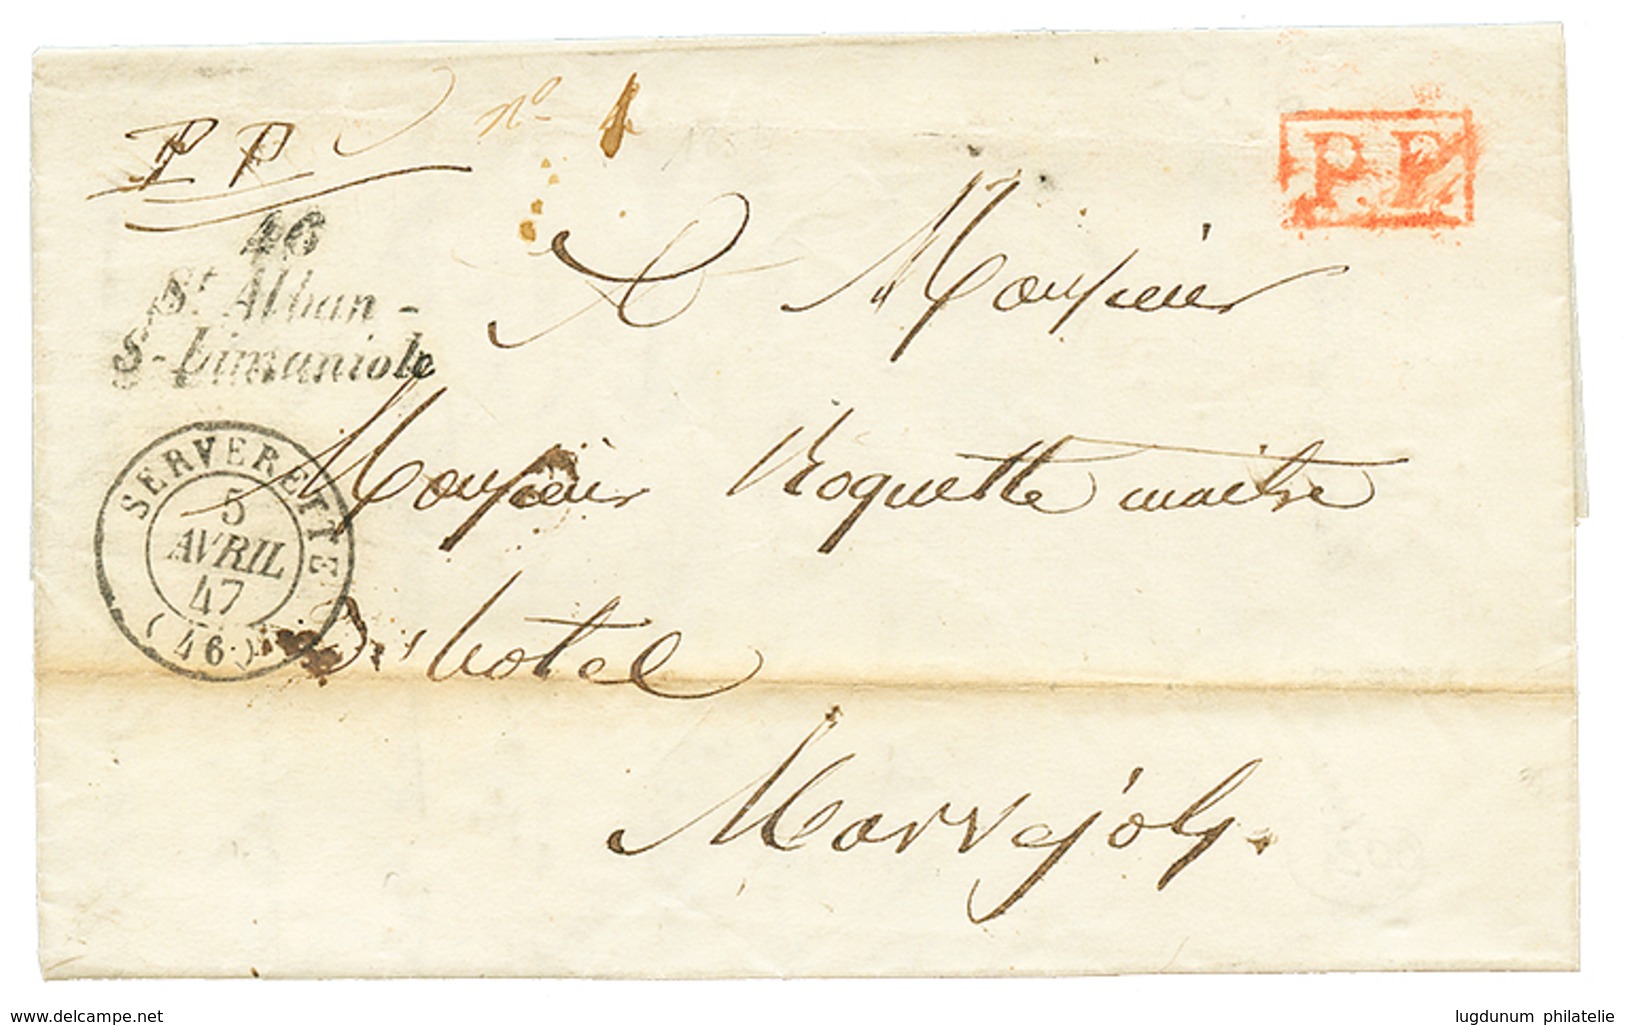 PP
n° 1
P.P.
46
St Alban-
S-Limaniole
A Monsieur
SERVERETTE
5
AVRIL
47
(46)
Monsieur Roquette maitre
D'hotel
Marvejols.
www.delcampe.net
lugdunum philatelie